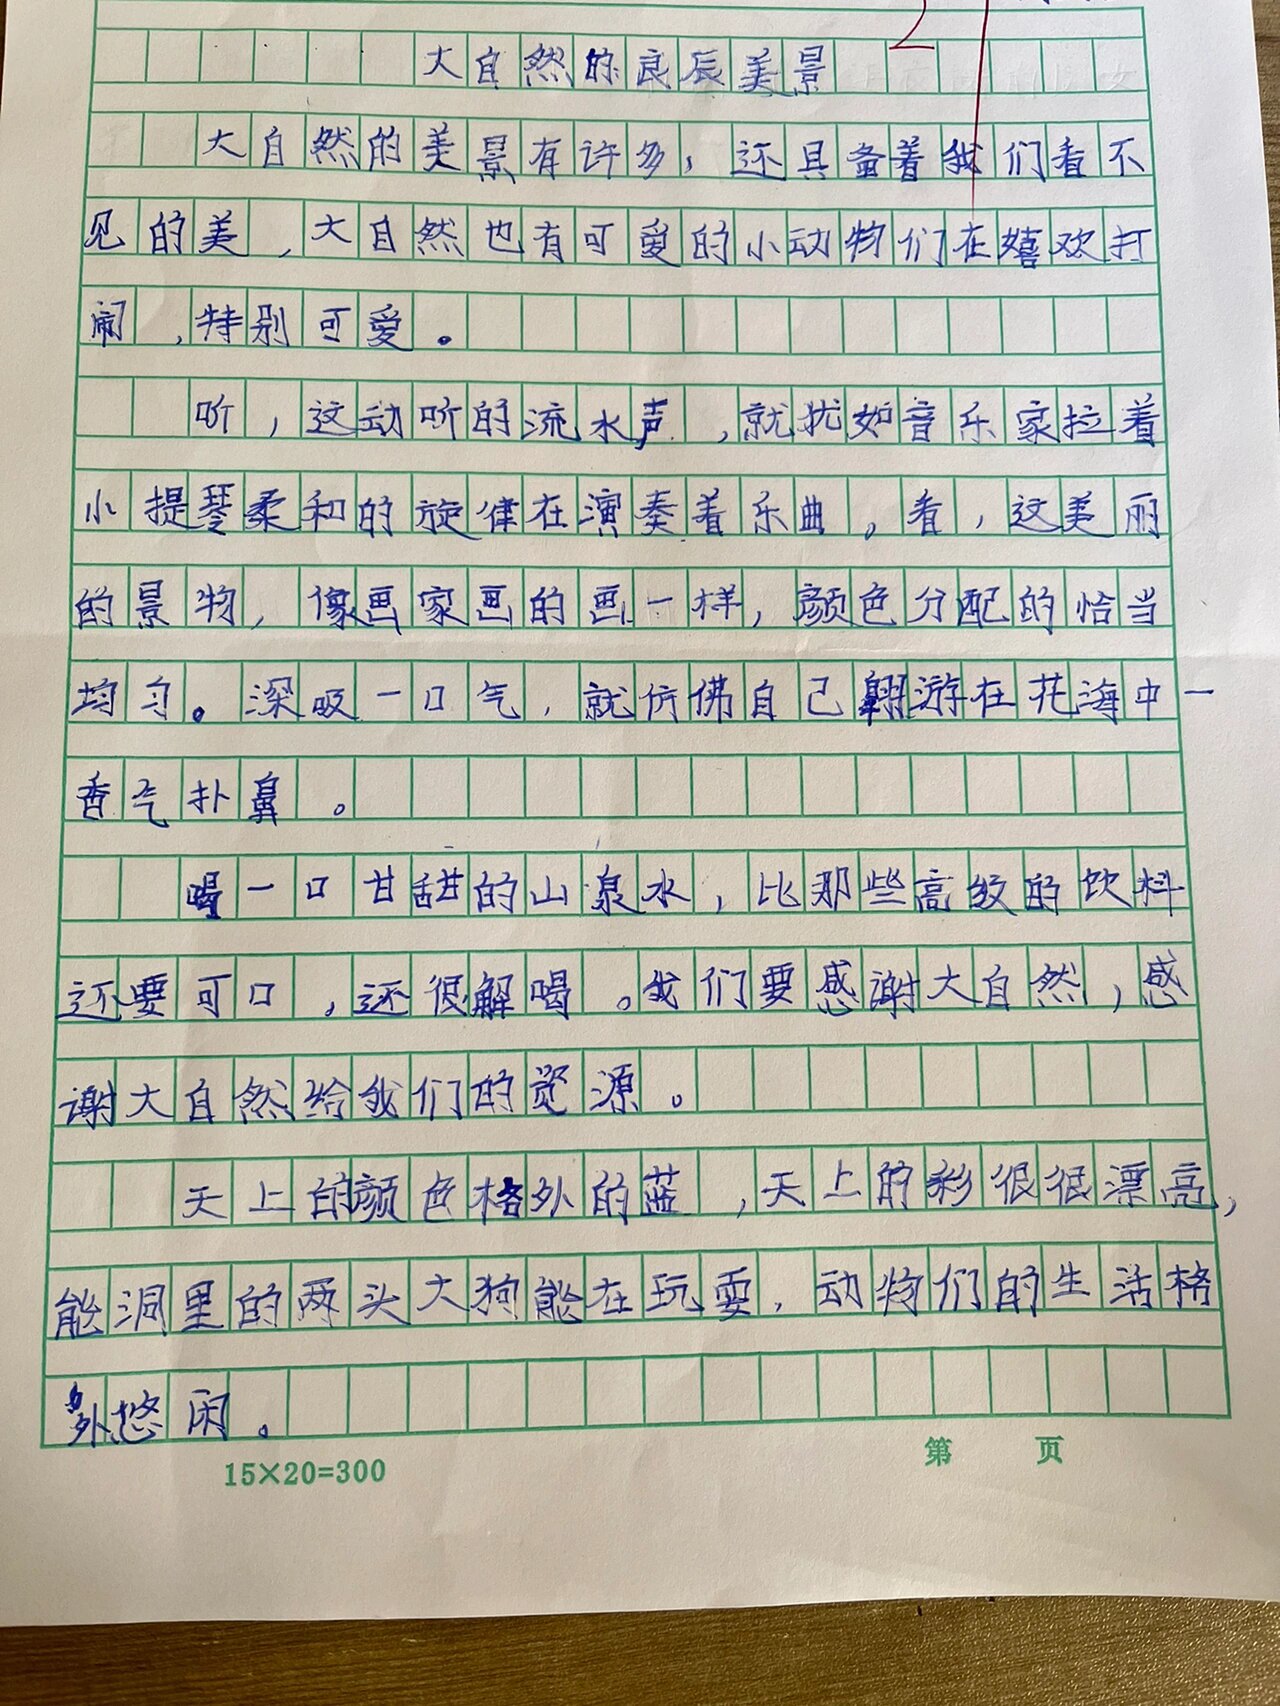 大自然的良辰美景
大自然的美景有许多，还具备着我们看不
见的美，大自然也有可爱的小动物们在嬉欢打
闹，特别可爱。
听，这动听的流水声，就犹如音乐家拉着
小提琴柔和的旋律在演奏着乐曲。看，这美丽
的景物，像画家画的画一样，颜色分配的恰当
均匀。深吸一口气，就仿佛自己翱游在花海中一
香气扑鼻。
喝一口甘甜的山泉水，比那些高级的饮料
还要可口，还很解喝。我们要感谢大自然，感
谢大自然给我们的资源。
天上的颜色格外的蓝，天上的彩很很漂亮，
能洞里的两头大狗能在玩耍，动物们的生活格
外悠闲。
15×20=300
第 页